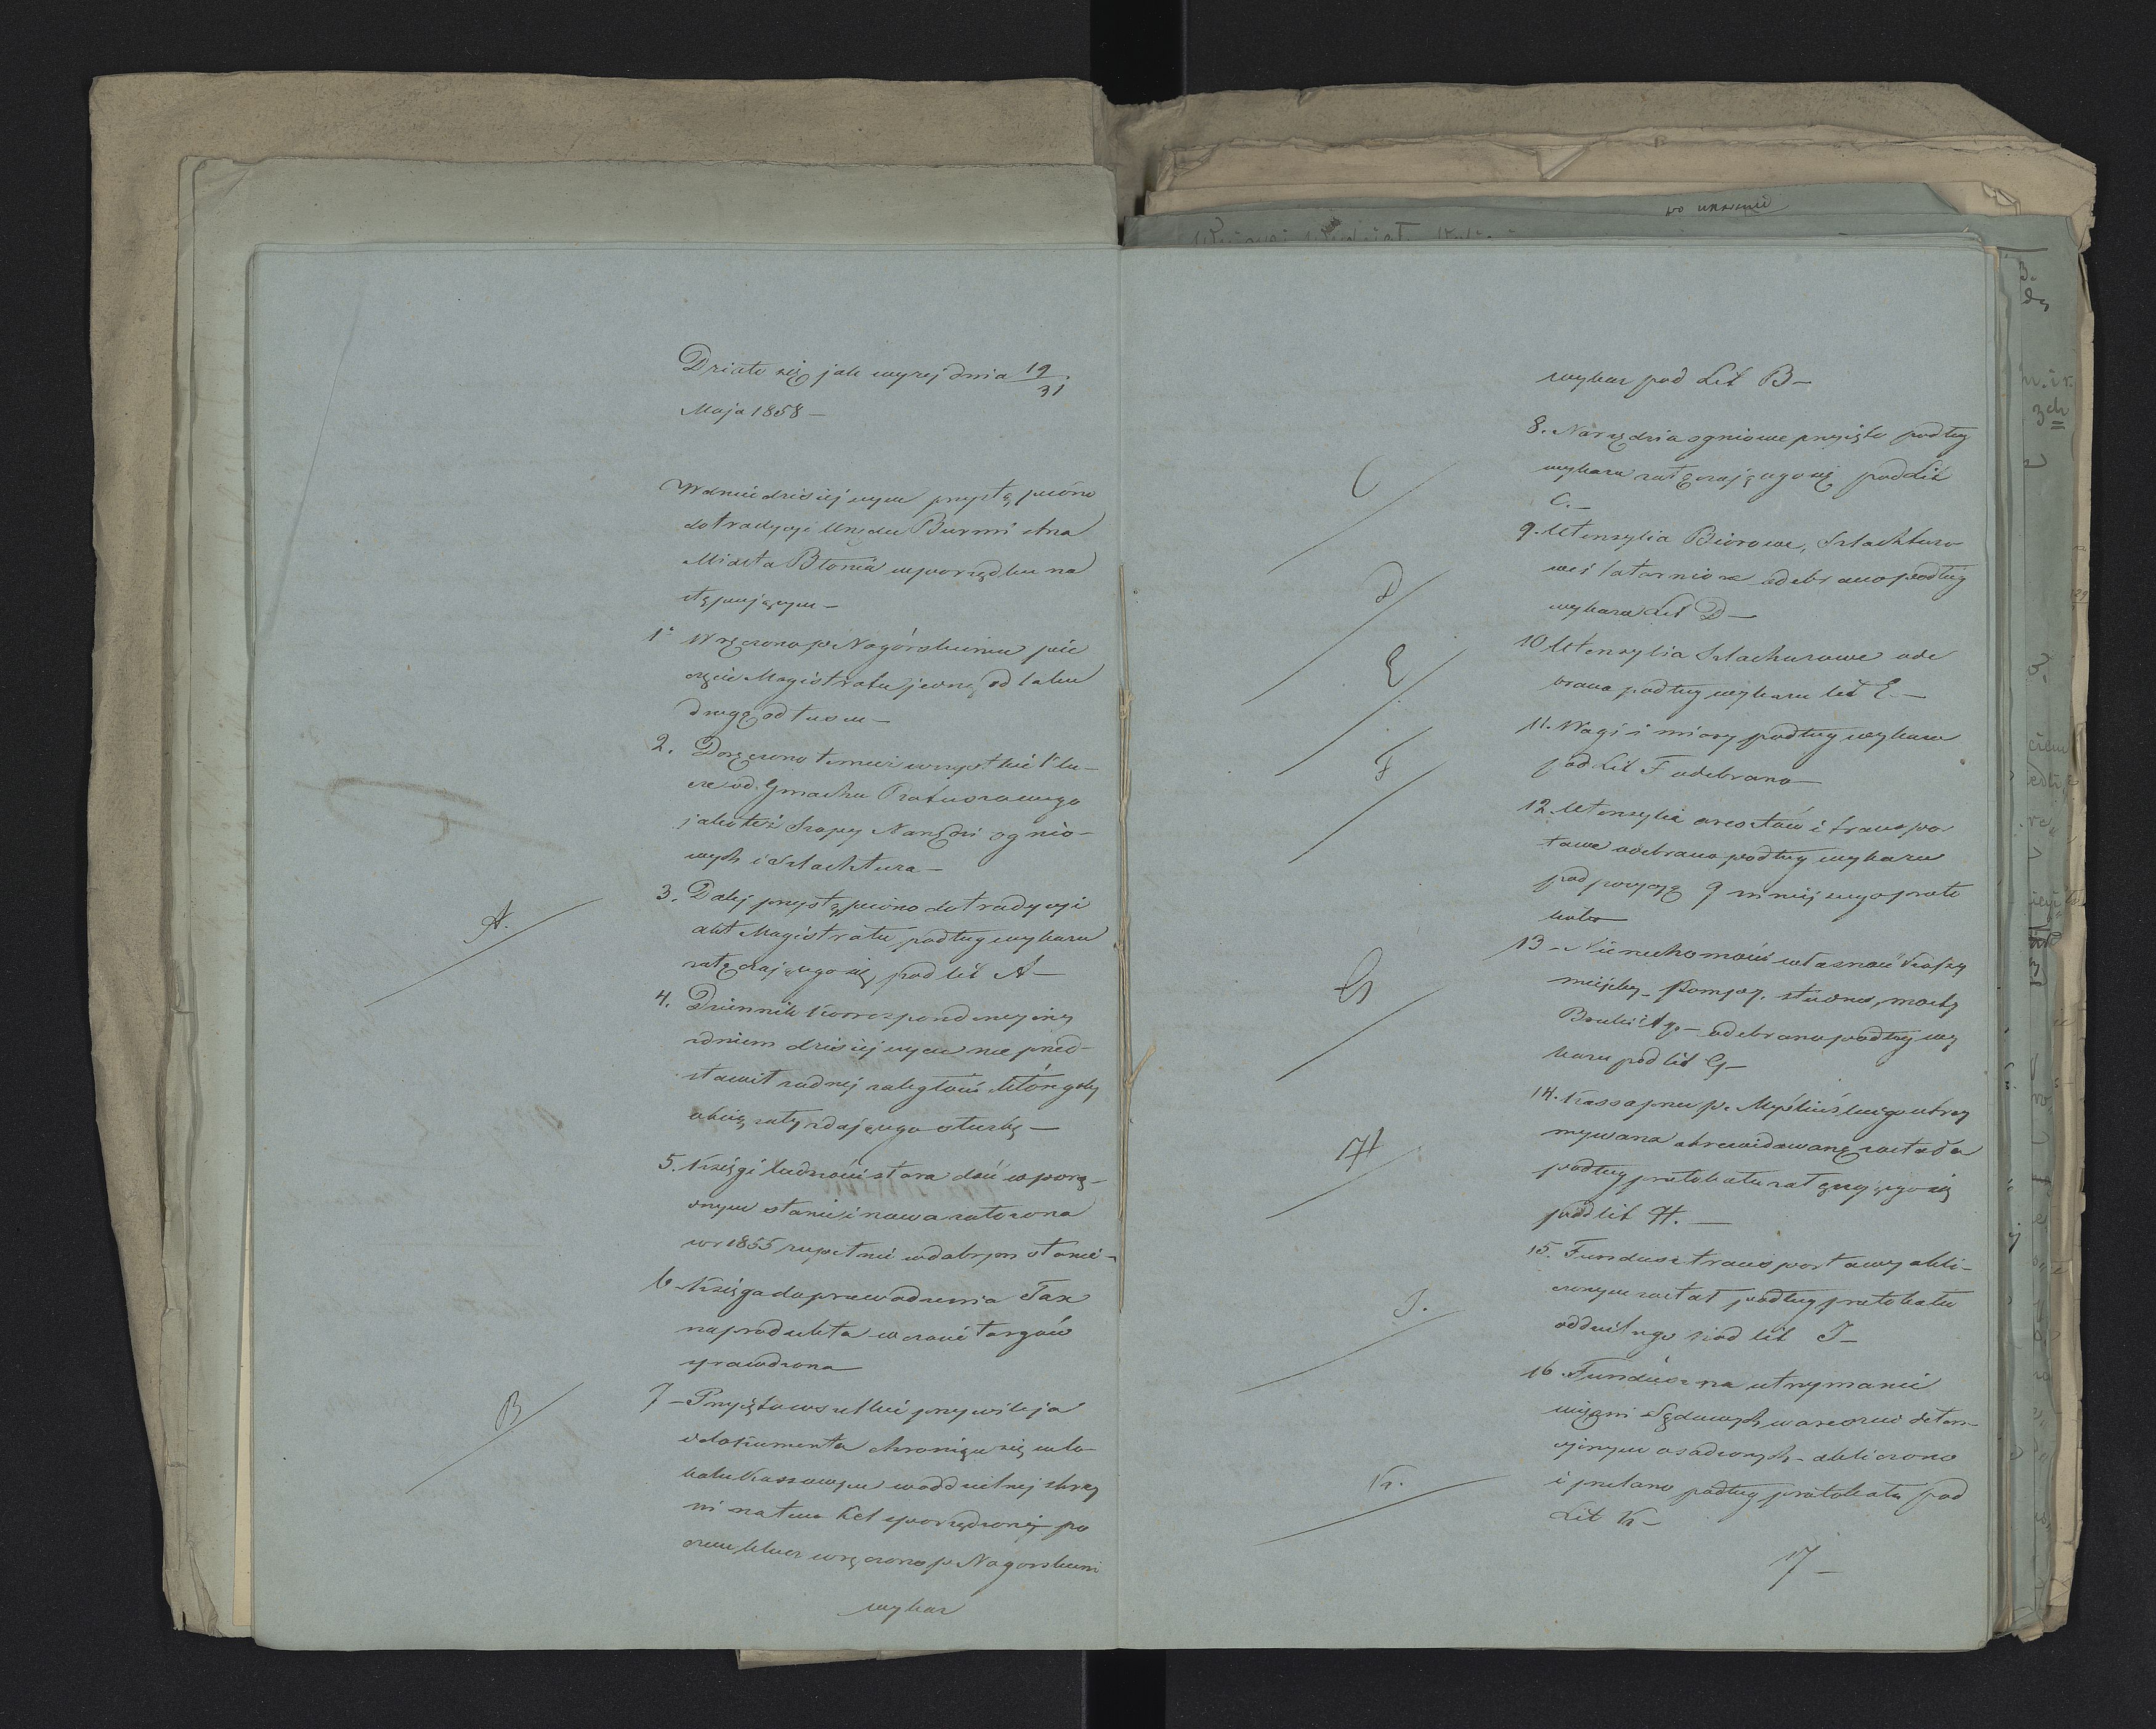 Działo się jak wyżej dnia 19/31
Maja 1858 —
W dniu dzisiejszym przystąpiono
do tradycyi Urzędu Burmistrza
Miasta Błonia w porządku na
stępującym —
1° Wręczono p. Nagórskiemu pie
częcie Magistratu jedną od laku
drugą od tuszu —
2. Doręczono temuż wszystkie klu-
cze od Gmachu Ratuszowego
jako też Szopy Narzędzi ognio-
wych i Szlachtuza —
A.
3. Dalej przystąpiono do tradycyi
akt Magistratu podług wykazu
załączającego się pod lit A —
4. Dziennik Korrespondencyiny
z dniem dzisiejszym nie przed-
stawił żadnej zaległość któregoby
akcię zdającego służbę —
5. Księgi ludności stara dość w porzą-
dnym stanie i nowa założona
w r 1855 zupełnie w dobrym stanie -
6 Księga do prowadzenia Tax
na produkta w czasie targów
sprawdzona
B
7 — Przyjęto wszelkie przywileja
i dokumenta chroniące się w lo-
kalu Kassowym w oddzielnej skrzy
ni na ten cel sporządzonej po
czem klucz wręczono p Nagorskiemu
wykaz
wykaz pod Lit B —
C
8. Narzędzia ogniowe przyjęto podług
wykazu załączającego się pod Lit
C. —
D
9. Utensylia Biórowe, Szlachtuzo
we i latarniowe odebrano podług
wykazu Lit D —
E
10 Utensylia Szlachuzowe ode
brano podług wykazu lit E. —
F
11. Wagi i miary podług wykazu
pod Lit F odebrano —
12. Utensylia aresztów i transpor
towe odebrano podług wykazu
pod pozycyą 9 niniejszego proto
kołu
G
13 — Nieruchomość własność Kassy
miejskiej — Pompy, studnie, mosty
Bruki it p — odebrano podług wy
kazu pod lit G —
H
14. Kassa przez p. Myśliwskiego utrzy
mywana zrewidowaną została
podług protokołu załączającego się
pod lit H. —
J.
15. Fundusz transportowy obli-
czonym został podług protokołu
oddzielnego pod lit J —
K.
16 Fundusz na utrzymanie
więźni Sądowych w areszcie deten-
cyjnym osadzonych — obliczono
i przelano podług protokołu pod
Lit K —
17 —